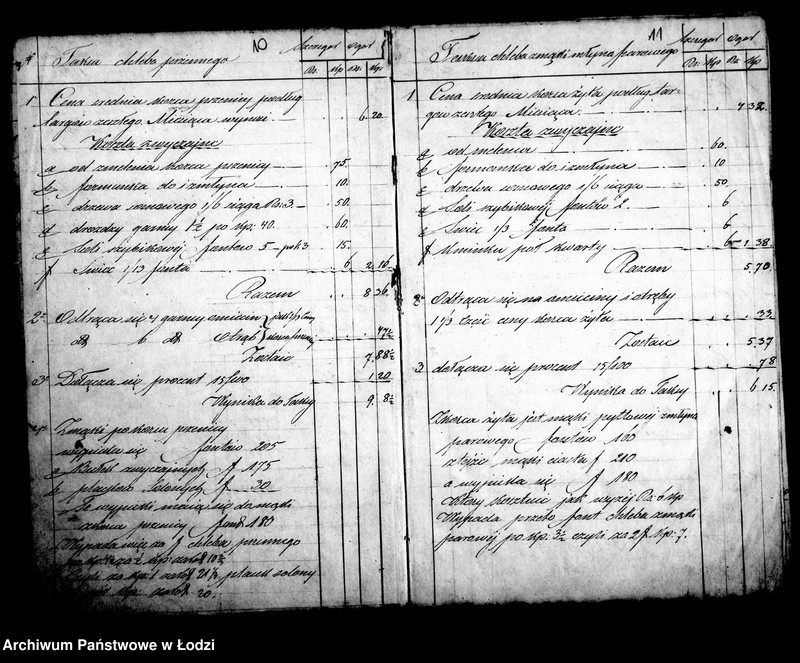 10
Taxa chleba pszennego
Szczegół Ogół
Rs. Kp. Rs. Kp.
1 Cena srednia korca pszenicy podług
targów zeszłego Miesiąca wynosi 6 20
Koszta zwyczajne
a od zmelenia korca pszenicy 75.
b furmanka do i z młyna 10.
c drzewa sosnowego 1/6 sąga Rs. 3 50.
d drozdzy garncy 1½ po kp. 40. 60.
e Soli szybikowej funtów 5 po k 3 15.
f Swiec 1/3 funta 6 2 16
Razem 8 36.
2 Odtrąca się garncy
6 47½
Zostaie 7. 88½
3 Dolącza się procent 15/100 1 20
Wynika do Taxy 9. 8½
4 Z mąki po korcu pszenicy
wypieka się funtów 205
a Bułek zwyczajnych f 175
b placków Solonych f 30
Ze wypieki maią się da mąki
z korca pszenicy funt 180
Wypada więc za f chleba pszennego
placek solony
20.
11
Taxa chleba z mąki młyna parowego
Szczegół Ogół
Rs. Kp. Rs. Kp.
1 Cena srednia korca żyta podług tar-
gów zeszłego Miesiąca 4 32.
Koszta zwyczajne
a od melenia 60.
b furmanka do i z młyna 10
c drzewa sosnowego 1/6 sąga 50.
d Soli szybikowej funtów 2 6
e Swiec 1/3 funta 6
f Kminku pół kwarty 6 1 38.
Razem 5 70.
2 Odtrąca się na omieciny i otręby
1 1/3 części ceny korca żyta 33
Zostaie 5 37
3 dolącza się procent 15/100 78
Wynika do Taxy 6 15.
Z korca żyta jest mąki pytlowej z młyna
parowego funtów 160
z tejże mąki ciasta f 210
a wypieka się f 180
który kosztuie jak wyżej Rs. 6 kp
Wypada przeto funt chleba z mąki
parowej po kp. 3½ czyli za 2 f kp: 7.
Archiwum Państwowe w Łodzi